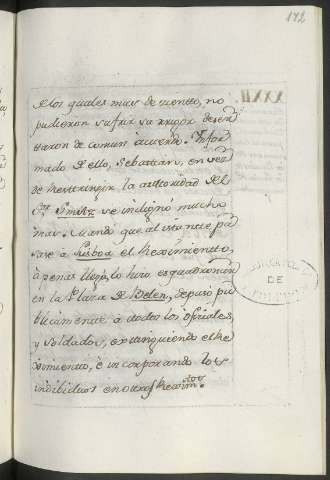 172
XXXII
de los quales mas de ciento, no
pudieron sufrir su rigor deser
taron de comun acuerdo. Infor
mado dello, Sebastian, en vez
de restringir la autoridad del
Smitz se indignó mucho
mas. Mandó que al istante pa
sase à Lisboa el Reximiento,
apenas llegó, lo hizo esquadronar
en la Plaza de Belen, depuso pu
blicamente a todos los oficiales,
y soldados, extinguiendo el Re
ximiento, è incorporando los
indibiduos en otros Reximtos.
DE